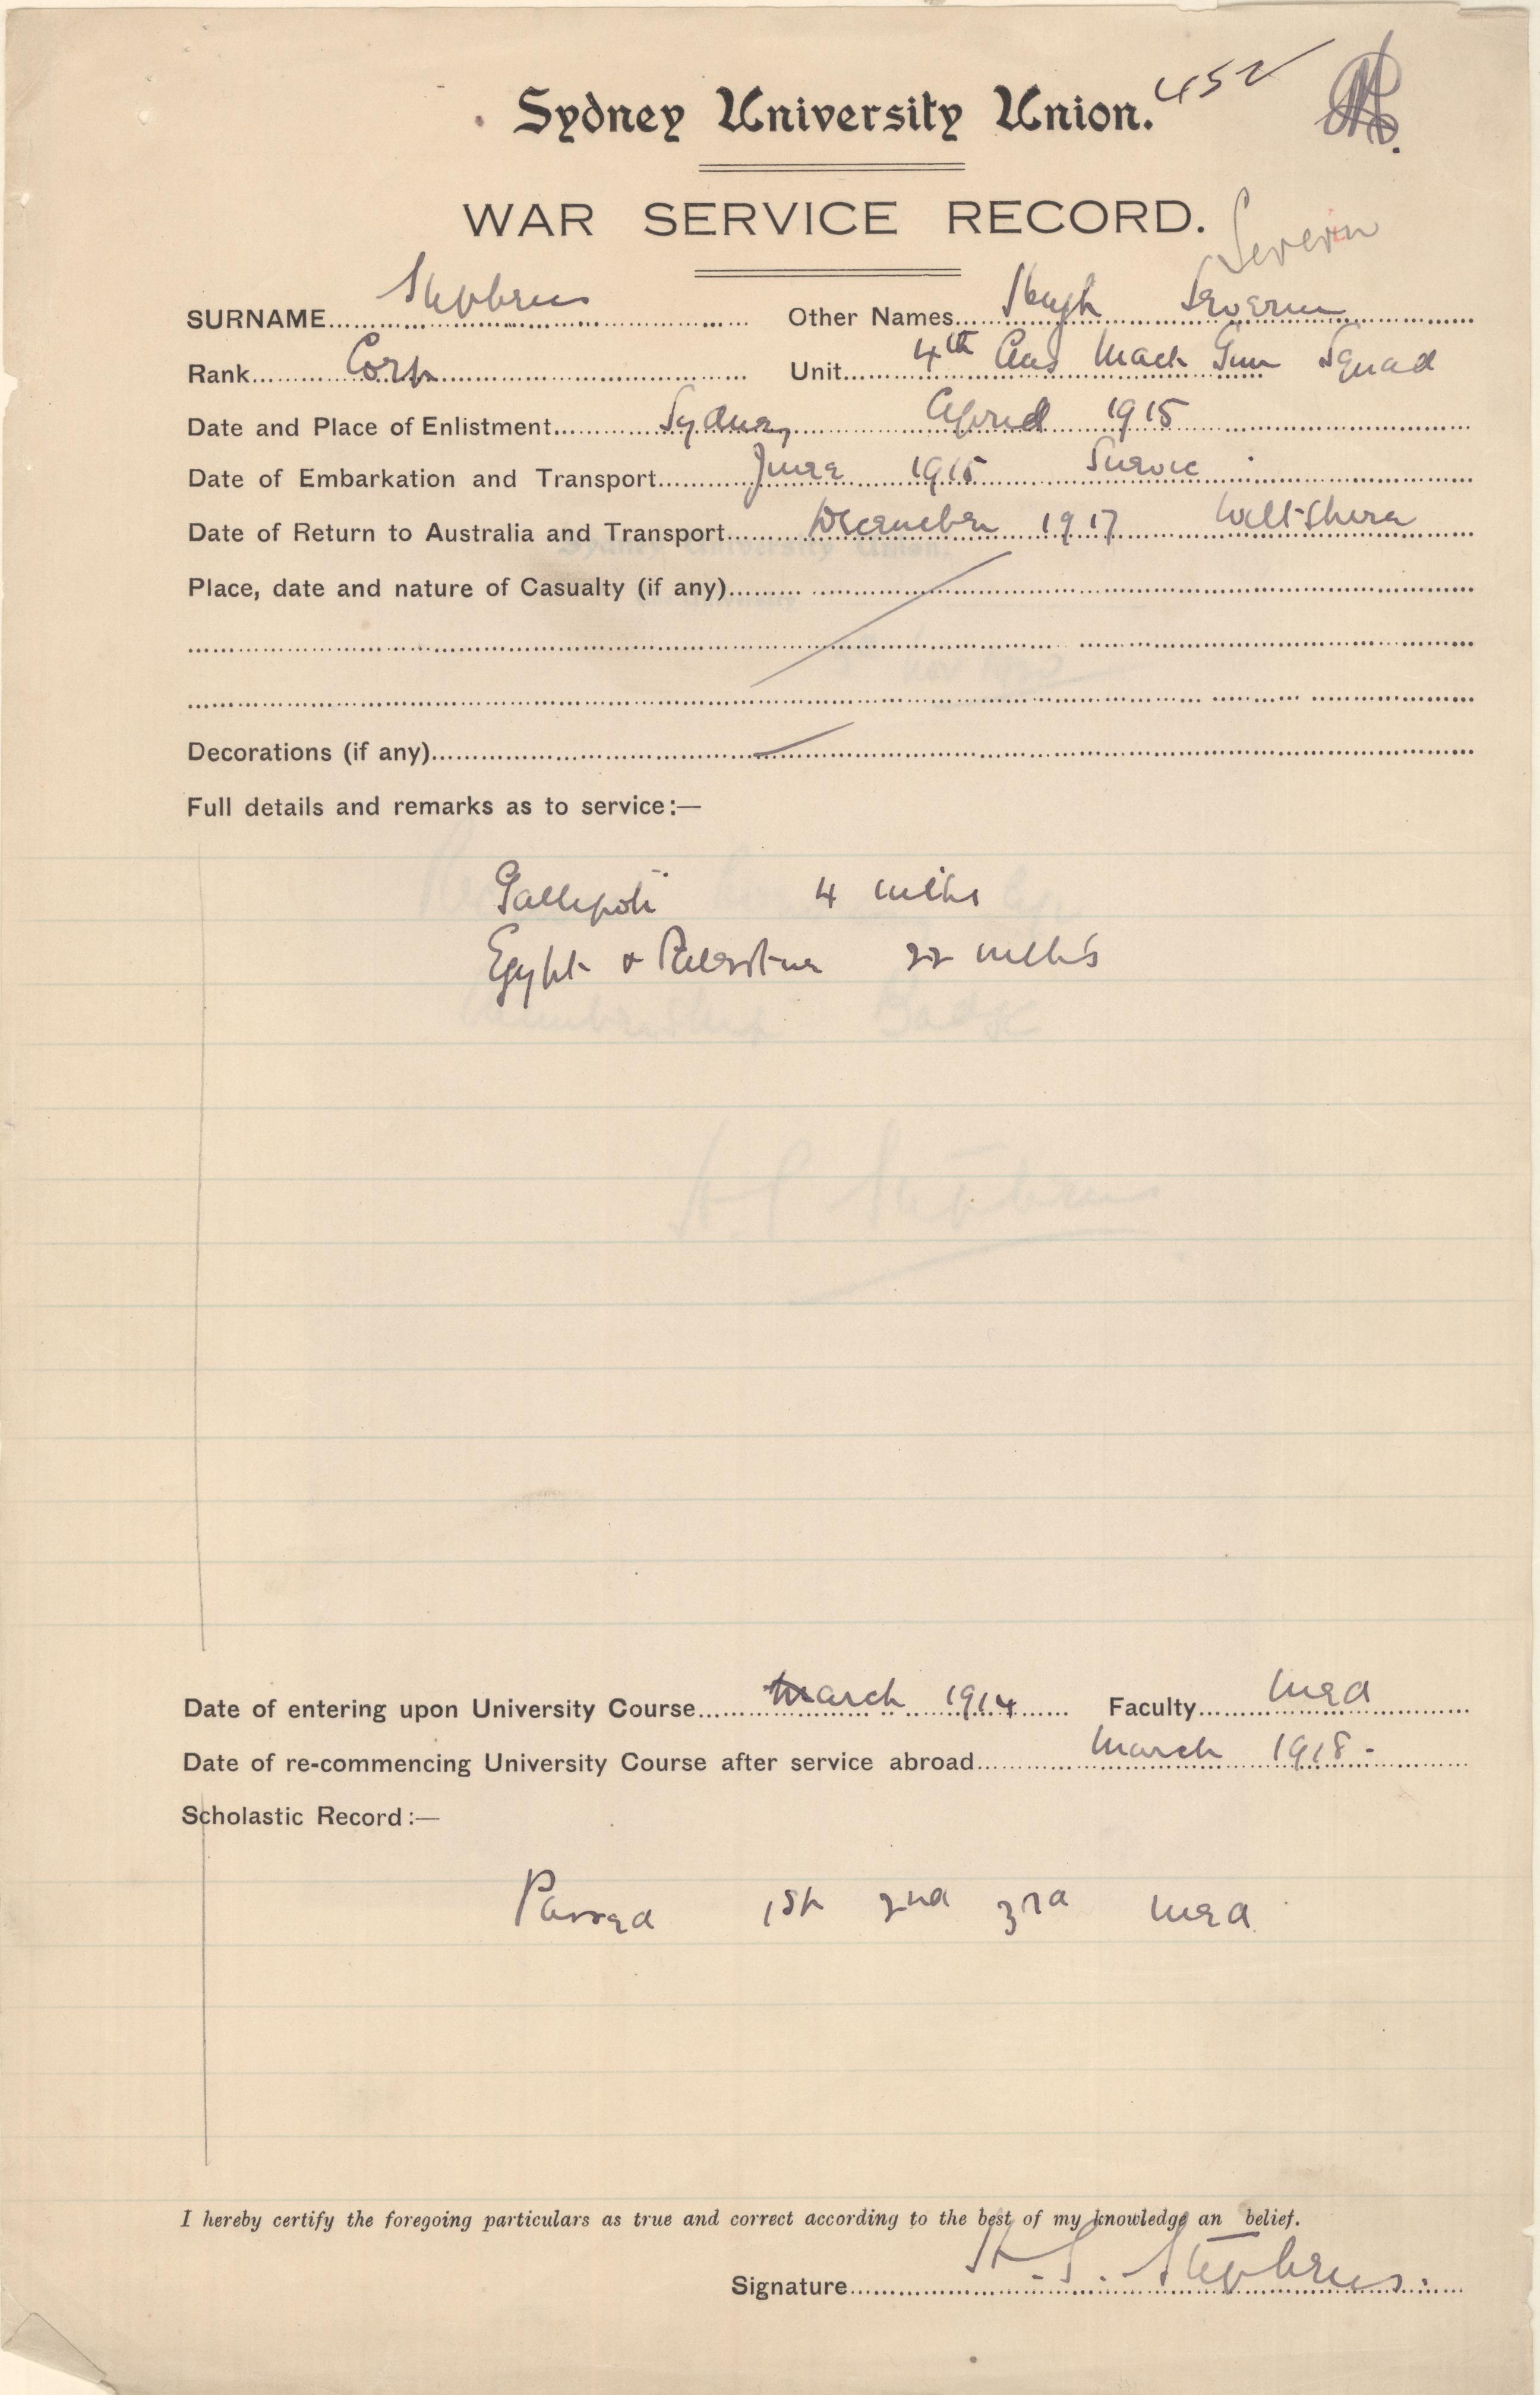 Sydney University Union. 452
WAR SERVICE RECORD.
Severin
SURNAME Stephens Other Names Hugh Severin
Rank Corp Unit 4th Aus Mach Gun Squad
Date and Place of Enlistment Sydney April 1915
Date of Embarkation and Transport June 1915 Suevic
Date of Return to Australia and Transport December 1917 Wiltshire
Place, date and nature of Casualty (if any)
Decorations (if any)
Full details and remarks as to service:—
Gallipoli 4 mths
Egypt & Palestine 22 mths
Date of entering upon University Course March 1914 Faculty Med
Date of re-commencing University Course after service abroad March 1918 -
Scholastic Record:—
Passed 1st 2nd 3rd Med
I hereby certify the foregoing particulars as true and correct according to the best of my knowledge an belief.
Signature H. S. Stephens.